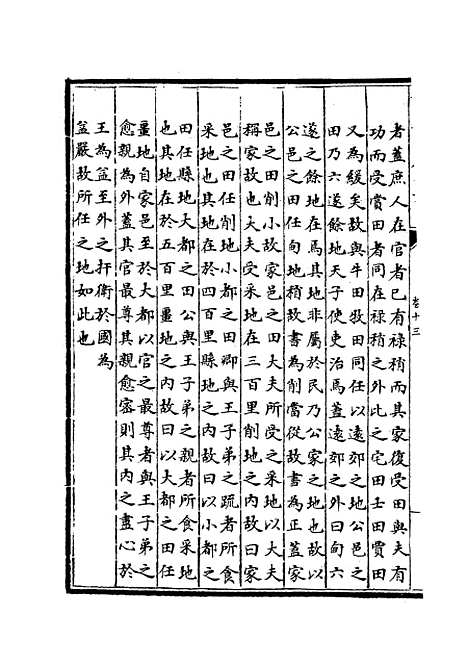 者蓋庶人在官者已有祿稍而其家復受田與夫有
功而受賞田者同在祿稍之外此之宅田士田賈田
又為緩矣故與牛田牧田同任以遠郊之地公邑之
田乃六遂餘地天子使吏治焉蓋遠郊之外曰甸六
遂之餘地在焉其地非屬於民乃公家之地也故以
公邑之田任甸地稍故書為削當從故書為正蓋家
邑之田任削小故家邑之田大夫所受之采地以大夫
稱家故也大夫受采地在三百里削地之内故曰家
邑之田任削地小都之田卿與王子弟之疏者所食
采地也其地在於四百里縣地之内故曰以小都之
田任縣地大都之田公與王子弟之親者所食采地
也其地在於五百里畺地之内故曰以大都之田任
畺地自家邑至於大都以官之最尊者與王子弟之
愈親為外蓋其官最尊其親愈密則其内之盡心於
王為益至外之扞衛於國為
益嚴故所任之地如此也
卷十三